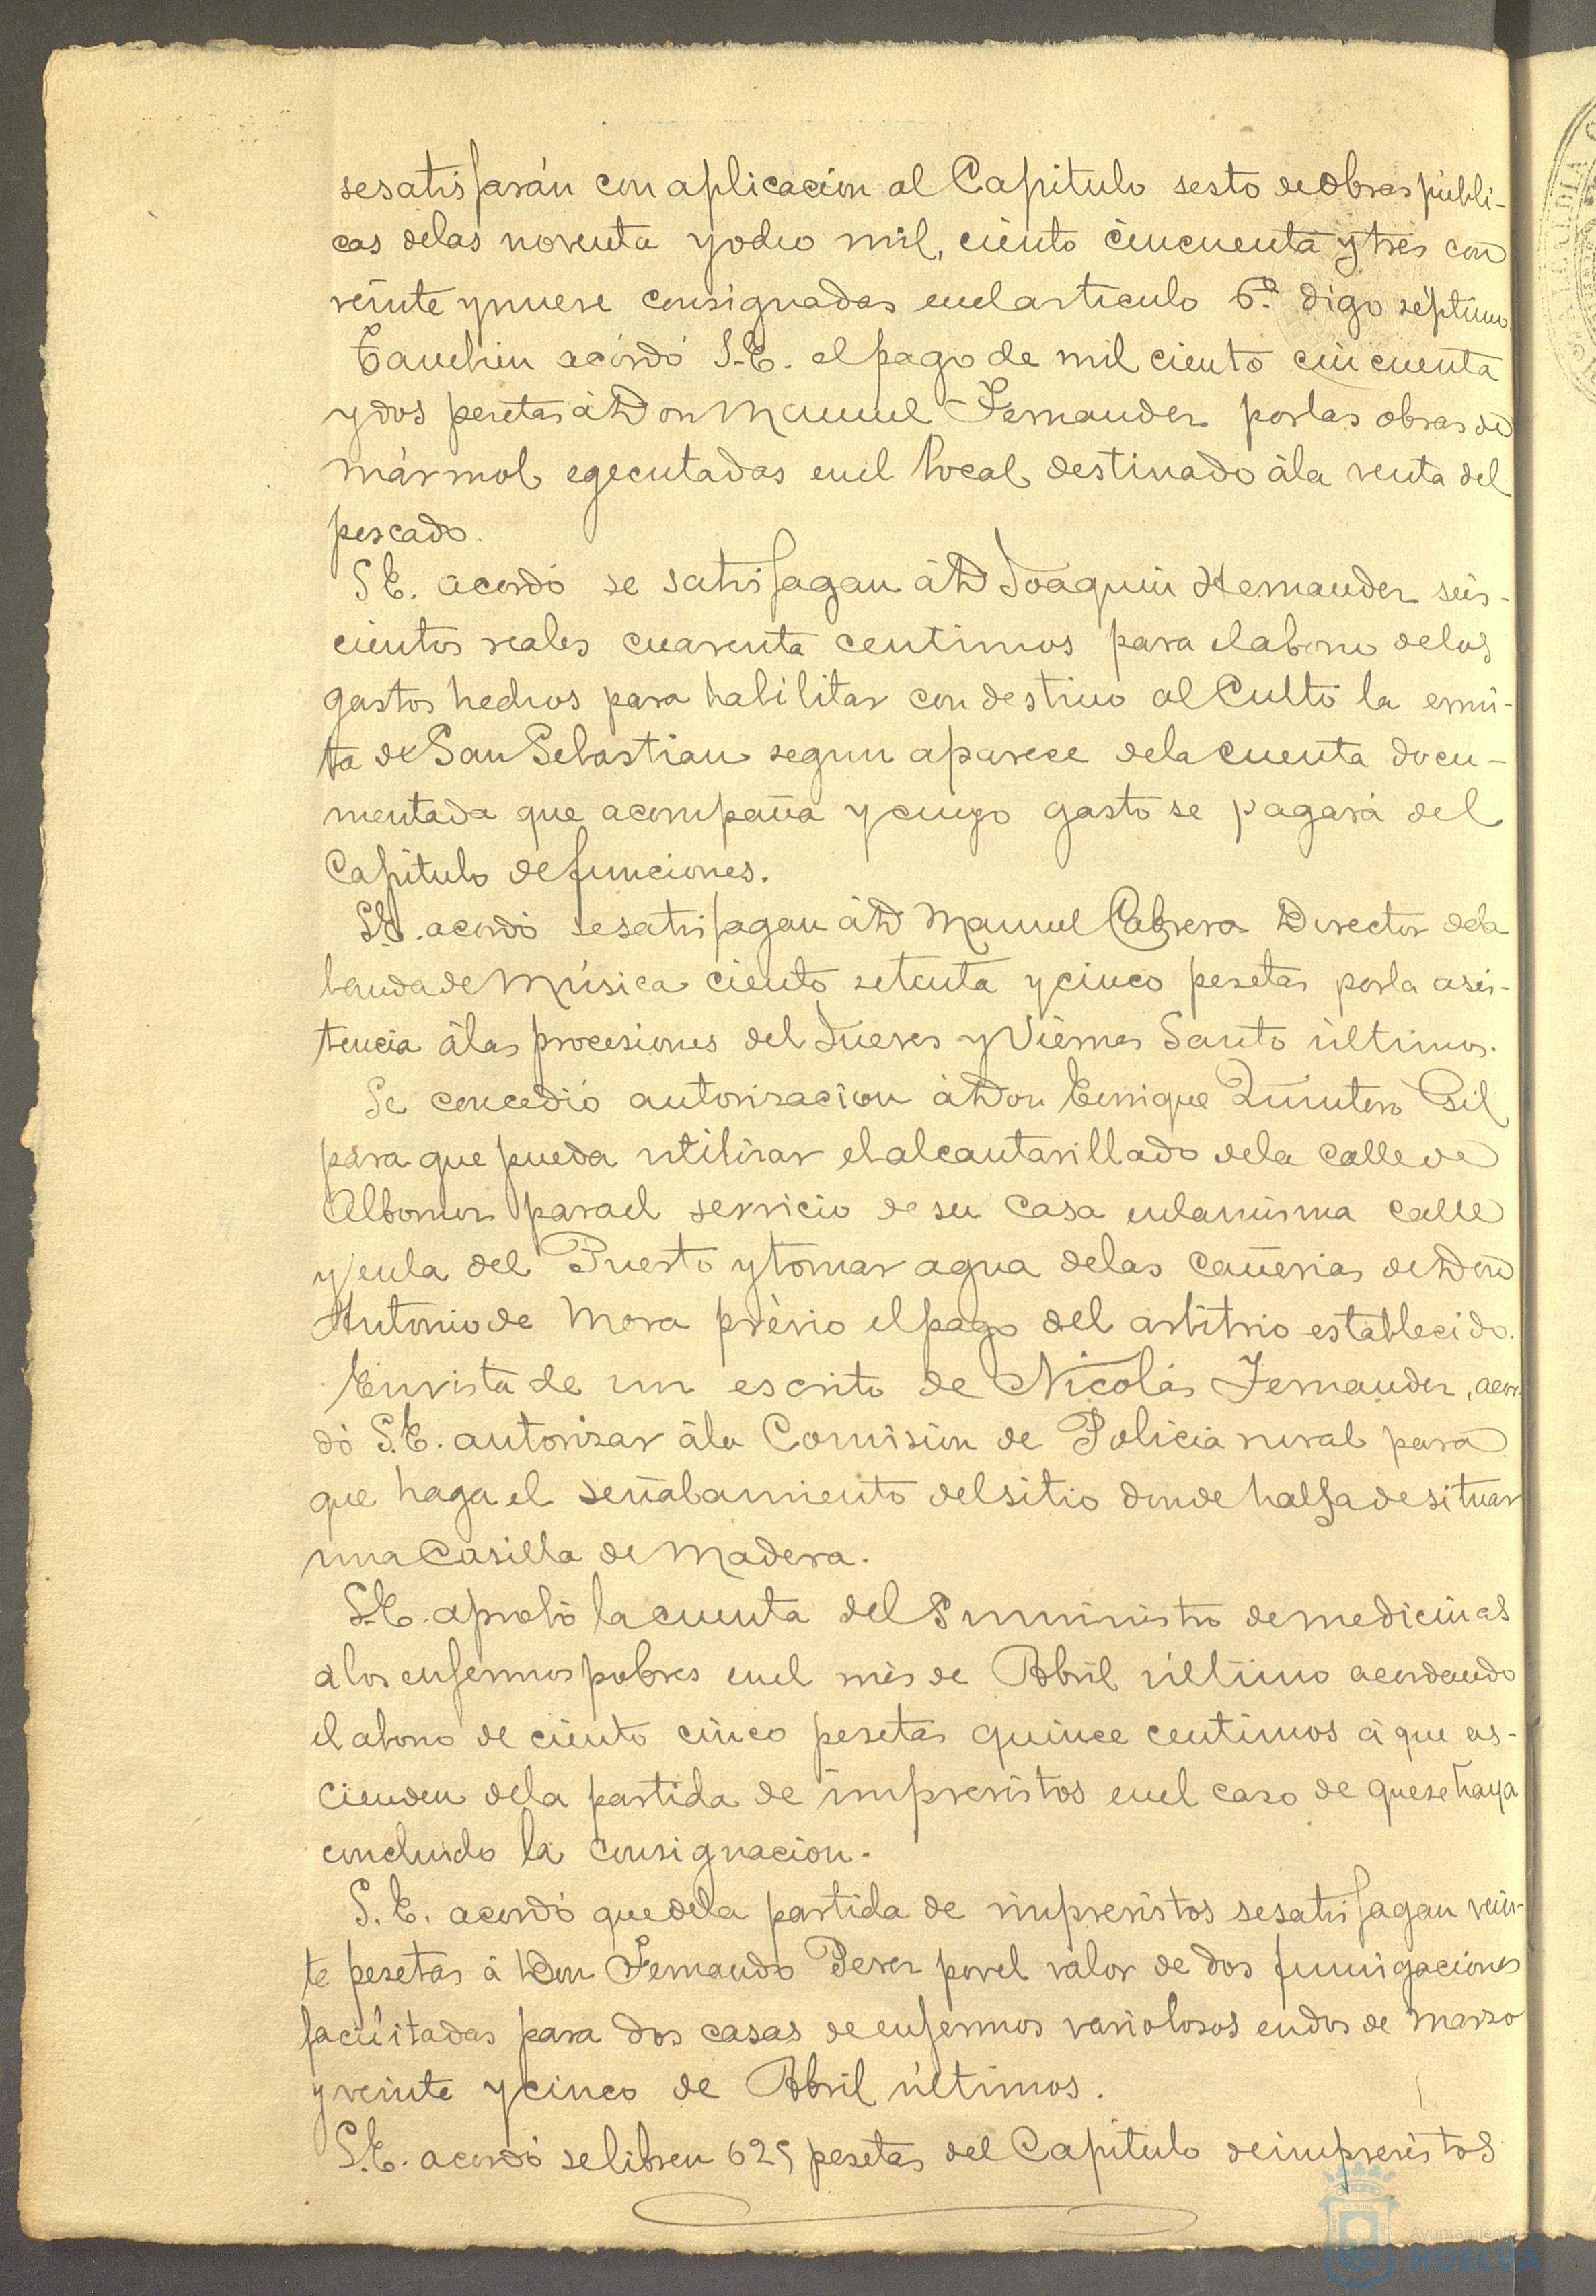 se satisfarán con aplicación al Capitulo sesto de obras públi-
cas de las noventa y ocho mil, ciento cincuenta y tres con
veinte y nueve consignadas en el articulo 6.º digo séptimo.
Tambien acordó S.E. el pago de mil ciento cincuenta
y dos pesetas á Don Manuel Fernandez por las obras de
mármol egecutadas en el local destinado á la venta del
pescado.
S.E. acordó se satisfagan á D Joaquin Hernandez seis-
cientos reales cuarenta centimos para el abono de los
gastos hechos para habilitar con destino al Culto la ermi-
ta de San Sebastian segun aparece de la cuenta docu-
mentada que acompaña y cuyo gasto se pagará del
Capitulo de funciones.
S.E. acordó se satisfagan á D Manuel Cabrera Director de la
banda de Música ciento setenta y cinco pesetas por la asis-
tencia á las procesiones del Jueves y Viernes Santo últimos.
Se concedió autorizacion á Don Enrique Quintero Gil
para que pueda utilizar el alcantarillado de la calle de
Albornoz para el servicio de su casa en la misma calle
y en la del Puerto y tomar agua de las cañerias de Don
Antonio de Mora prévio el pago del arbitrio establecido.
En vista de un escrito de Nicolás Fernandez, acor-
dó S.E. autorizar á la Comision de Policia rural para
que haga el señalamiento del sitio donde halla de situar
una Casilla de Madera.
S.E. aprobó la cuenta del Suministro de medicinas
á los enfermos pobres en el mes de Abril último acordando
el abono de ciento cinco pesetas quince centimos á que as-
cienden de la partida de imprevistos en el caso de que se haya
concluido la consignacion.
S.E. acordó que de la partida de imprevistos se satisfagan vein-
te pesetas á Don Fernando Perez por el valor de dos fumigaciones
facilitadas para dos casas de enfermos variolosos en dos de marzo
y veinte y cinco de Abril últimos.
S.E. acordó se libren 625 pesetas del Capitulo de imprevistos
Ayuntamiento
HUELVA